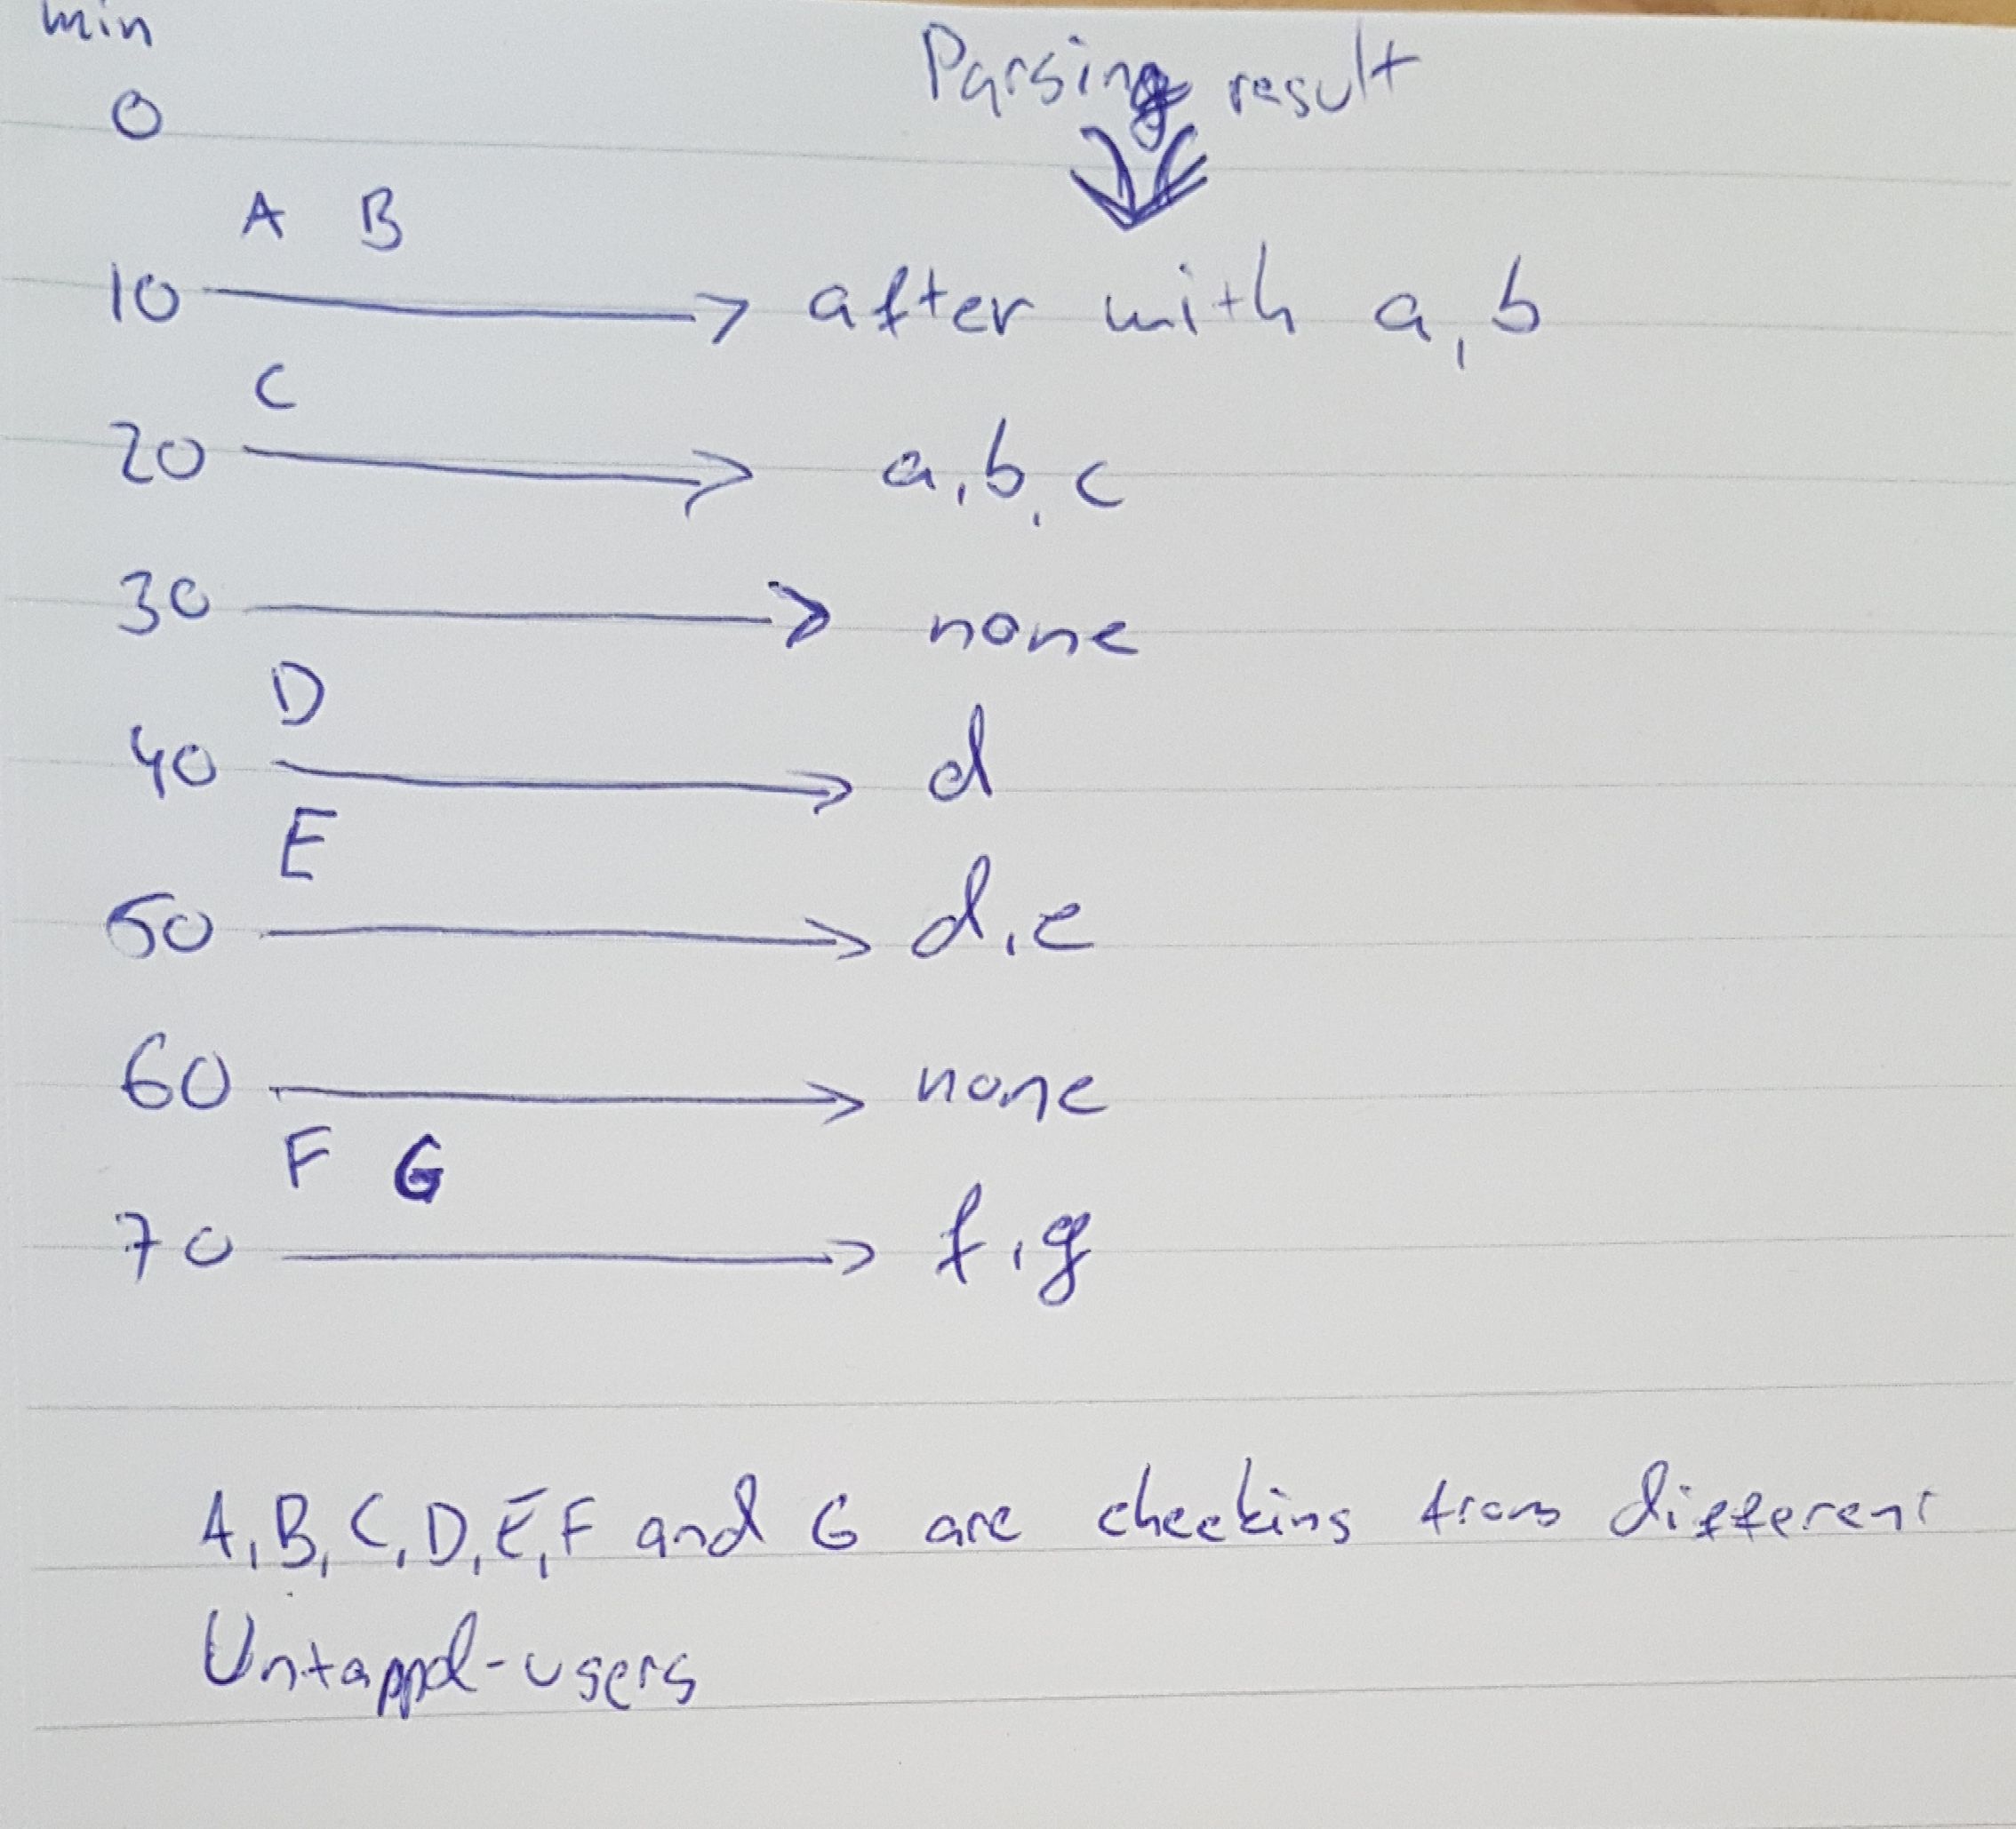 min
Parsing result
0
A B
10 → after with a, b
C
20 → a, b, c
30 → none
D
40 → d
E
50 → d, e
60 → none
F G
70 → f, g
A, B, C, D, E, F and G are checkins from different
Untappd-users